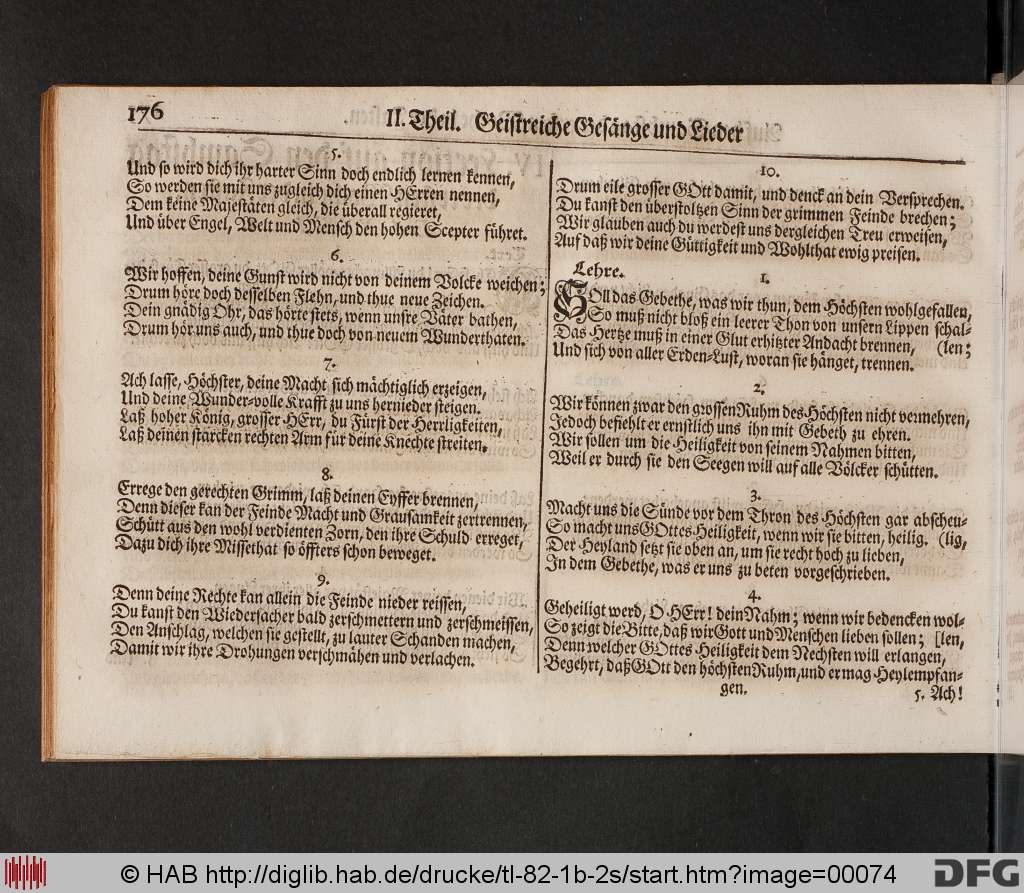 176
II. Theil. Geistreiche Gesänge und Lieder
5.
Und so wird dich ihr harter Sinn doch endlich lernen kennen,
So werden sie mit uns zugleich dich einen HErren nennen,
Dem keine Majestäten gleich, die überall regieret,
Und über Engel, Welt und Mensch den hohen Scepter führet.
6.
Wir hoffen, deine Gunst wird nicht von deinem Volcke weichen;
Drum höre doch desselben Flehn, und thue neue Zeichen.
Dein gnädig Ohr, das hörte stets, wenn unsre Väter bathen,
Drum hör uns auch, und thue doch von neuem Wunderthaten.
7.
Ach lasse, Höchster, deine Macht sich mächtiglich erzeigen,
Und deine Wunder-volle Krafft zu uns hernieder steigen.
Laß hoher König, grosser HErr, du Fürst der Herrligkeiten,
Laß deinen starcken rechten Arm für deine Knechte streiten.
8.
Errege den gerechten Grimm, laß deinen Eyffer brennen,
Denn dieser kan der Feinde Macht und Grausamkeit zertrennen,
Schütt aus den wohl verdienten Zorn, den ihre Schuld erreget,
Dazu dich ihre Missethat so öffters schon beweget.
9.
Denn deine Rechte kan allein die Feinde nieder reissen,
Du kanst den Wiedersacher bald zerschmettern und zerschmeissen,
Den Anschlag, welchen sie gestellt, zu lauter Schanden machen,
Damit wir ihre Drohungen verschmähen und verlachen.
10.
Drum eile grosser GOtt damit, und denck an dein Versprechen.
Du kanst den überstoltzen Sinn der grimmen Feinde brechen;
Wir glauben auch du werdest uns dergleichen Treu erweisen,
Auf daß wir deine Güttigkeit und Wohlthat ewig preisen.
Lehre.
1.
SOll das Gebethe, was wir thun, dem Höchsten wohlgefallen,
So muß nicht bloß ein leerer Thon von unsern Lippen schal-
Das Hertze muß in einer Glut erhitzter Andacht brennen, (len;
Und sich von aller Erden-Lust, woran sie hänget, trennen.
2.
Wir können zwar den grossen Ruhm des Höchsten nicht vermehren,
Jedoch befiehlt er ernstlich uns ihn mit Gebeth zu ehren.
Wir sollen um die Heiligkeit von seinem Nahmen bitten,
Weil er durch sie den Seegen will auf alle Völcker schütten.
3.
Macht uns die Sünde vor dem Thron des Höchsten gar abscheu-
So macht uns GOttes Heiligkeit, wenn wir sie bitten, heilig. (lig,
Der Heyland setzt sie oben an, um sie recht hoch zu lieben,
In dem Gebethe, was er uns zu beten vorgeschrieben.
4.
Geheiligt werd, O HErr! dein Nahm; wenn wir bedencken wol-
So zeigt die Bitte, daß wir Gott und Menschen lieben sollen; [len,
Denn welcher GOttes Heiligkeit dem Nechsten will erlangen,
Begehrt, daß GOtt den höchsten Ruhm, und er mag Heyl empfan-
gen.
5. Ach!
© HAB http://diglib.hab.de/drucke/tl-82-1b-2s/start.htm?image=00074
DFG